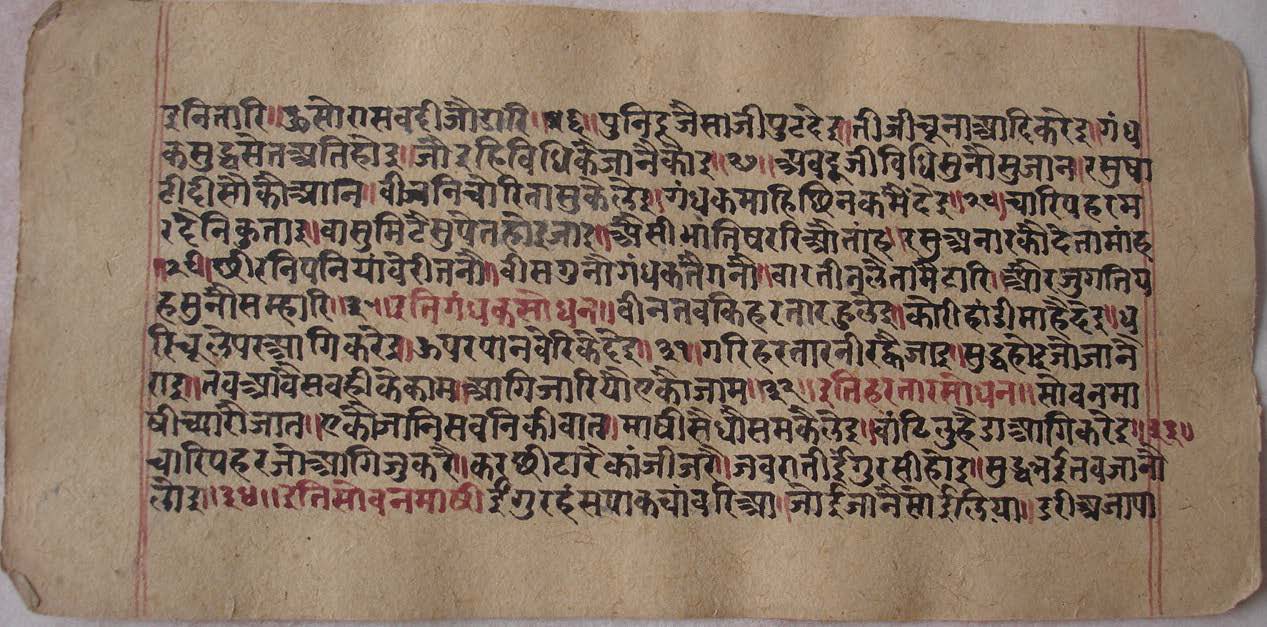 इनितारि॥ऊसोरासवहीजौडारि।२६॥पुनिदूजैसाजीपुटदेइ॥नीजीचूनाआदिकरेइ॥गंध
कसुद्धसेतअतिहोइ॥जौइहिविधिकैजानैकोइ॥२७॥अवदूजीविधिसुनौसुजान॥रसुषा
टीद्दीसौकौआनि॥वीजनिचोरितासुकैलेइ॥गंधकमाहिछिनकमैंदेइ॥२८॥चारिपहरम
रदैनिकुताइ॥वासुमिटैसुपैतहोइजाइ॥औसीभांतिषररिऔतांह॥रसुअनारकौदेतामांह
॥२९॥छीरनिपनियांवेरीतनौ॥वीसगुनौगंधकतैगनौ॥वारतीतुलैतामैटारि॥औरजुगतिय
हसुनौसम्हारि॥३०॥इतिगंधकसोधन॥वीनतवकिहरतारहुलेइ॥कोरीहांडीमाहैदेइ॥ध
रिचूलेपरआगिकरेइ॥ऊपरपानवेरिकेदेइ॥३१॥गरिहरतारनीरह्वैजाइ॥सुद्धहोइजौजानै
राइ॥तवआवैसवहीकेकाम॥आगिजारियौएकौजाम॥३२॥इतिहरतारसोधन॥सोवनमा
षीच्यारौजात॥एकौजानिसवनिकीवात॥माषीसैधौसमकैलेइ॥वांटिलुहैडाआगिकरेइ॥३३॥
चारिपहरजोआगिजुकरै॥करछीटारैकांजीजरै॥जवरातीईंगुरसीहोइ॥सुद्धभईतवजानौ
लोइ॥३४॥इतिसोवनमाषी॥ईंगुरहंसपाकचांवरिआ॥जोईजानैसोईलिया॥दरीअजापा